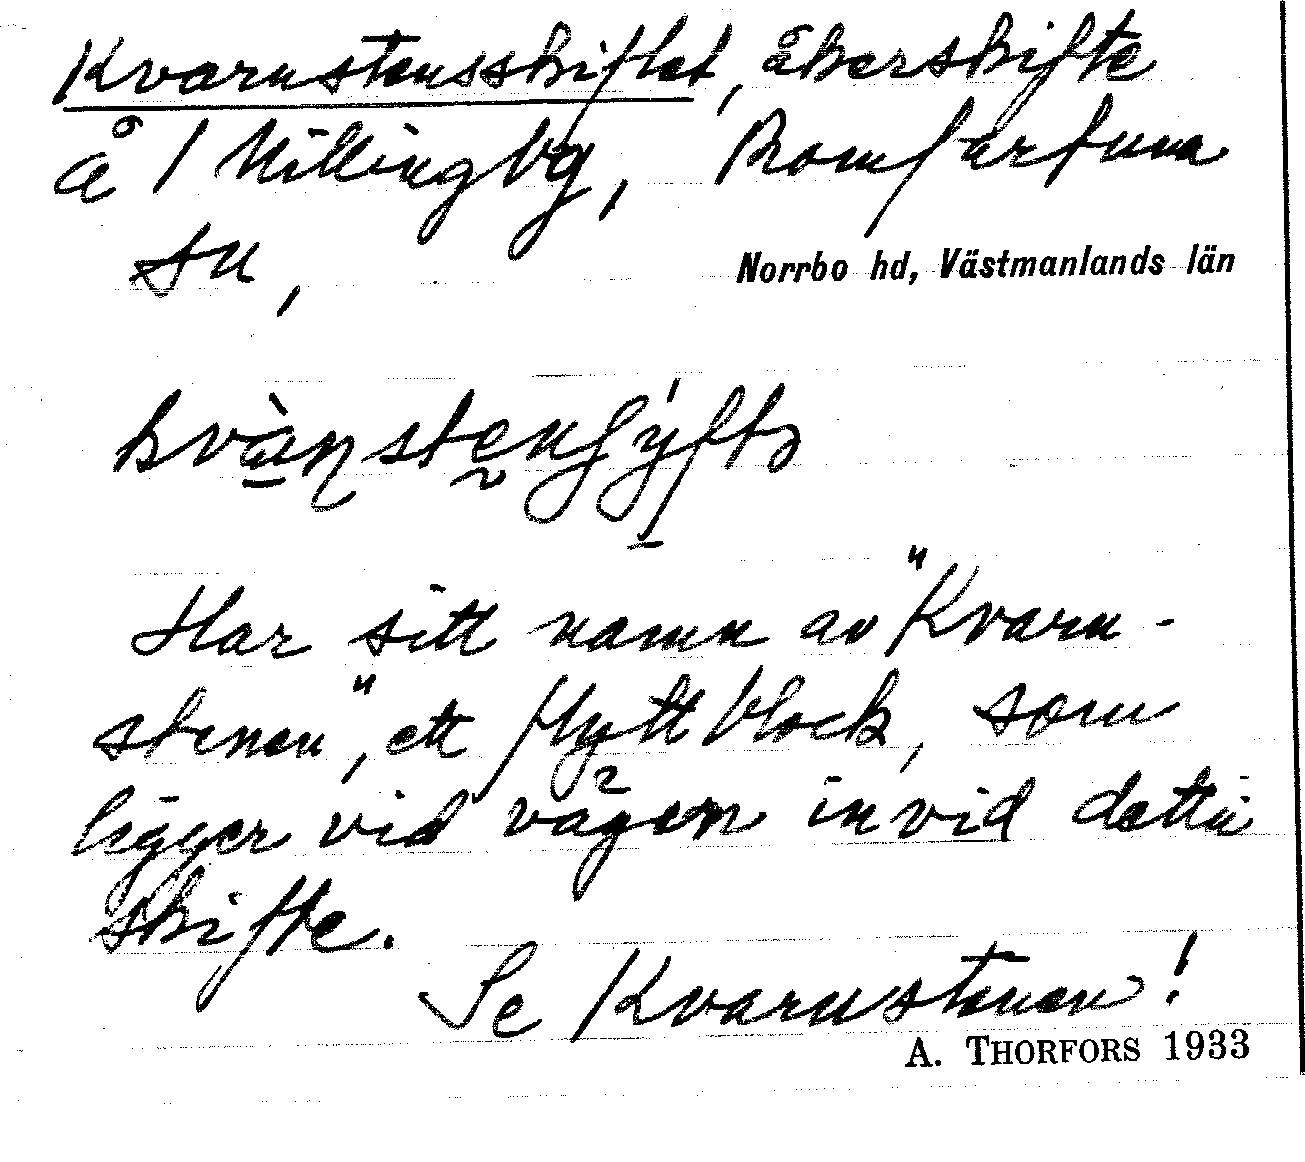 Kvarnstensskiftet, åkerskifte
å / Nillingby, Romfartuna
sn,
Norrbo hd, Västmanlands län
Har sitt namn av "Kvarn-
stenen", ett flyttblock, som
ligger vid vägen invid detta
skifte.
Se Kvarnstenen!
A. THORFORS 1933